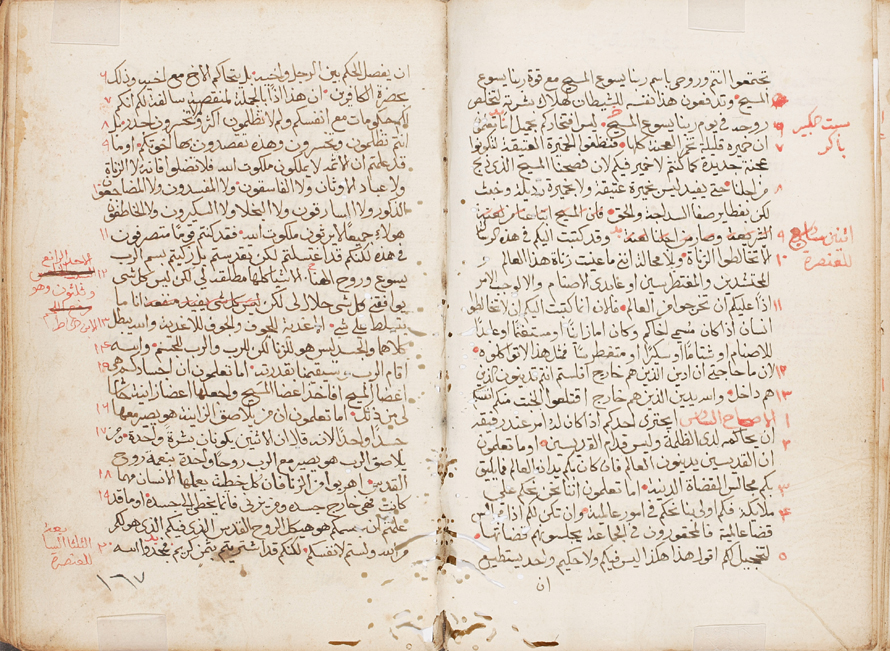 تجتمعوا انتم وروحي باسم ربنا يسوع المسيح مع قوة ربنا يسوع
المسيح وتدفعون هذا نفسه للشيطان لهلاك بشريته لتخلص
روحه في يوم ربنا يسوع المسيح ليس افتخاركم بجميل اما تعلمون
ان خميرة قليلة تخمر العجنة كلها فتنظفوا الخميرة العتيقة لتكونوا
عجنة جديدة كما كنتم لا خمير فيكم لان فصحنا المسيح الذي ذبح
من اجلنا حتى نفيد ليس بخميرة عتيقة ولا بخميرة رذيلة وخبث
لكن بفطاير صفا السداجة والحق
وقد كتبت اليكم في هذه الرسالة
الا تخالطوا الزناة ولا محالة انني ما عنيت زناة هذا العالم
المحتشدين والمغتطرسين او عابدي الاصنام والا لوجب الامر
اذا عليكم ان تخرجوا من العالم فالان انما كتبت اليكم ان لا تخالطوا
انسان اذا كان مسمي اخاكم وكان اما زانيا او مستغنما او عابدا
للاصنام او شتاما او سكيرا او متغطرسا فمثل هذا لا تواكلوه
لان ما حاجتي ان ادين الذين هم خارج افلستم انتم تدينون الذين
هم داخل والله يدين الذين هم خارج اقتلعوا الخبث منكم انفسكم
الاصحاح السادس ايجتري احدكم اذا كان له امر عند رفيقه
ان يحاكمه لدي الظلمة وليس قدام القديسين او ما تعلمون
ان القديسين يدينون العالم فان كان بكم يدان العالم فما يليق
بكم مجالس القضاة الدنية اما تعلمون اننا نحن نحكم علي
ملايكة فكم اولي بنا نحكم في امور عالمية وان تكن لكم اذا مجالس
قضا عالمية فالمحقورون في الجماعة يجلسون لهم قضاتها
لتخجيلكم اقول هذا هكذا ليس فيكم ولا حكيم واحد يستطيع
ان
سبت حكير
باكر
اثنين
للعنصرة
ان يفصل الحكم بين الرجل واخيه بل يتحاكم الاخ مع اخيه وذلك
بحضرة الكافرين ان هذا اذا بالجملة لمنقصة سالفة لكم انكم
لكم حكومات مع انفسكم ولم لا تظلمون اكثر وتخسرون احدر بل
انتم تظلمون وتخسرون وهذه تقصدون بها اخوتكم او ما
قد علمتم ان الاثمة لا يملكون ملكوت الله فلا تضلوا فانه لا الزناة
ولا عباد الاوثان ولا الفاسقون ولا المفسدون ولا المضاجعون
الذكور ولا السارقون ولا البخلا ولا السكيرون ولا الخاطفون
هولاء جميعا لا يرثون ملكوت الله فقد كنتم قوما متصرفون
في هذه لكنكم قد اغتسلتم لكن تقدستم بل زكيتم باسم الرب
يسوع وروح الهنا الاشيا كلها مطلقة لي لكن ليس كل شي
يوافقني كل شي حلالا لي لكن انا ما
يتسلط علي شي الاغذية للجوف والجوف للاغذية والله يبطل
كلاهما والجسد ليس هو للزنا لكن للرب والرب للجسم والله
اقام الرب وسيقيمنا بقدرته اما تعلمون ان اجسادكم هي
اعضا المسيح افاخذ اعضا المسيح واجعلها اعضا زانية حاشا
لي من ذلك اما تعلمون ان من يلاصق الزانية هو يصير معها
جسدا واحدا لانه قال ان الاثنين يكونان بشرة واحدة ومن
يلاصق الرب هو يصير مع الرب روحا واحدة بنعمة روح
القدس اهربوا من الزنا فان كل خطية يعملها الانسان مهما
كانت فهي خارج جسده ومن يزني فانما يخطي الي جسده او ما قد
علمتم ان جسمكم هو هيكل الروح القدس الذي فيكم الذي هو لكم
من الله ولستم لانفسكم لانكم قد اشتريتم بثمن كريم فمجدوا الله
الاحد الرابع
وثلثون وهو
بعد
الثلثا السا
للعنصرة
١٦٧